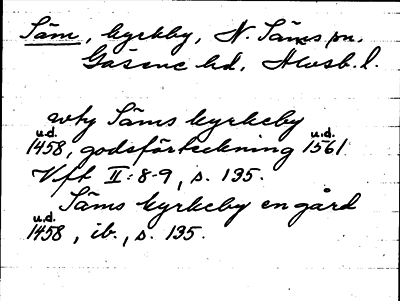 Säm, kyrkby, N. Säms sn.
Gäsene hd, Älvsb. l.
wtj Säms kyrkeby
u.d. 1458, godsförteckning u.d. 1561
Vft II: 8-9, s. 135.
Säms kyrkeby en gård
u.d. 1458, ib., s. 135.